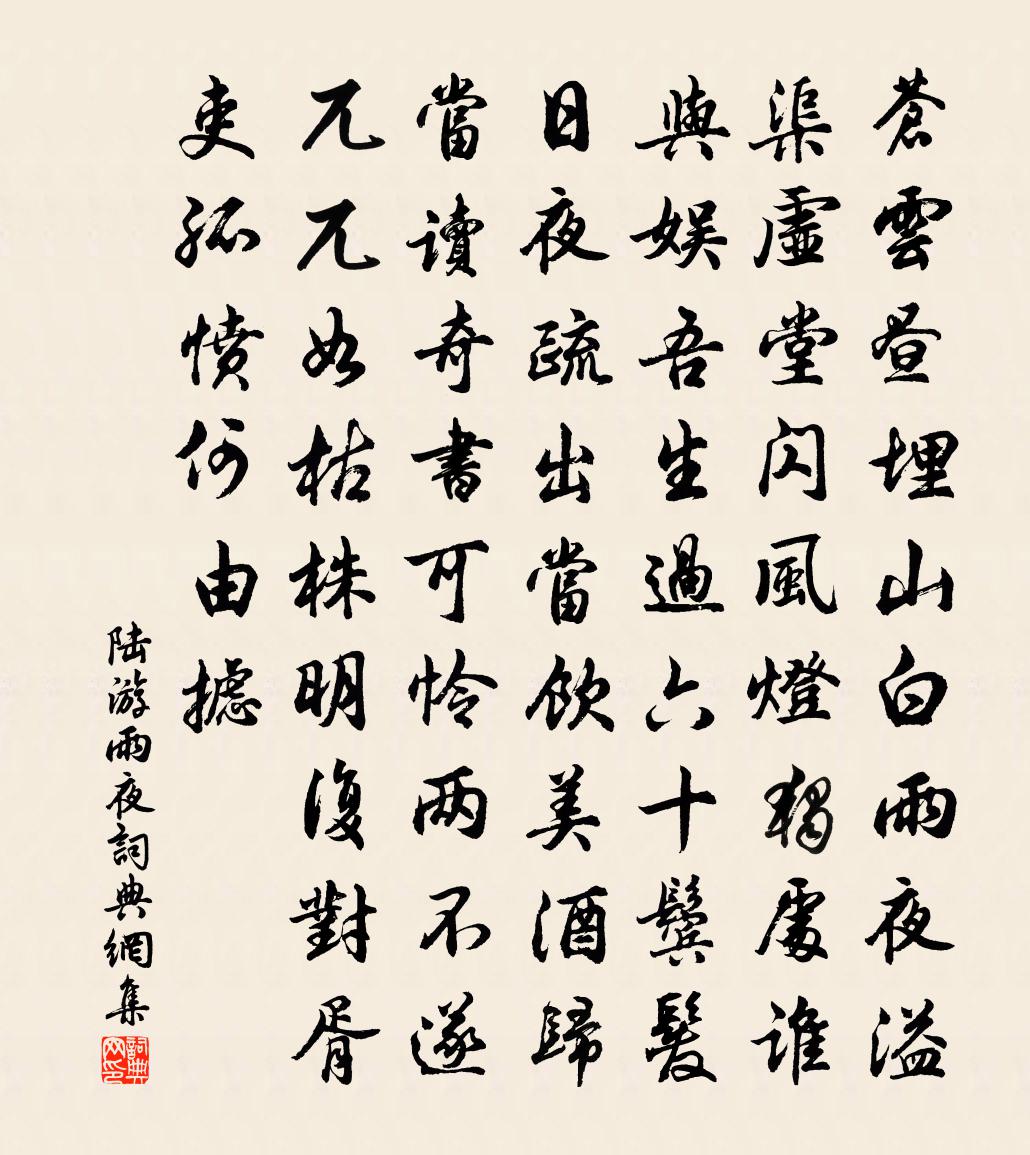 蒼雲晝埋山白雨夜溢
渠虛堂閃風燈獨處誰
與娛吾生過六十鬢髮
日夜疏出當飲美酒歸
當讀奇書可憐兩不遂
兀兀如枯株明復對胥
吏孤憤何由攄
陆游雨夜詞典網集
詞典网印